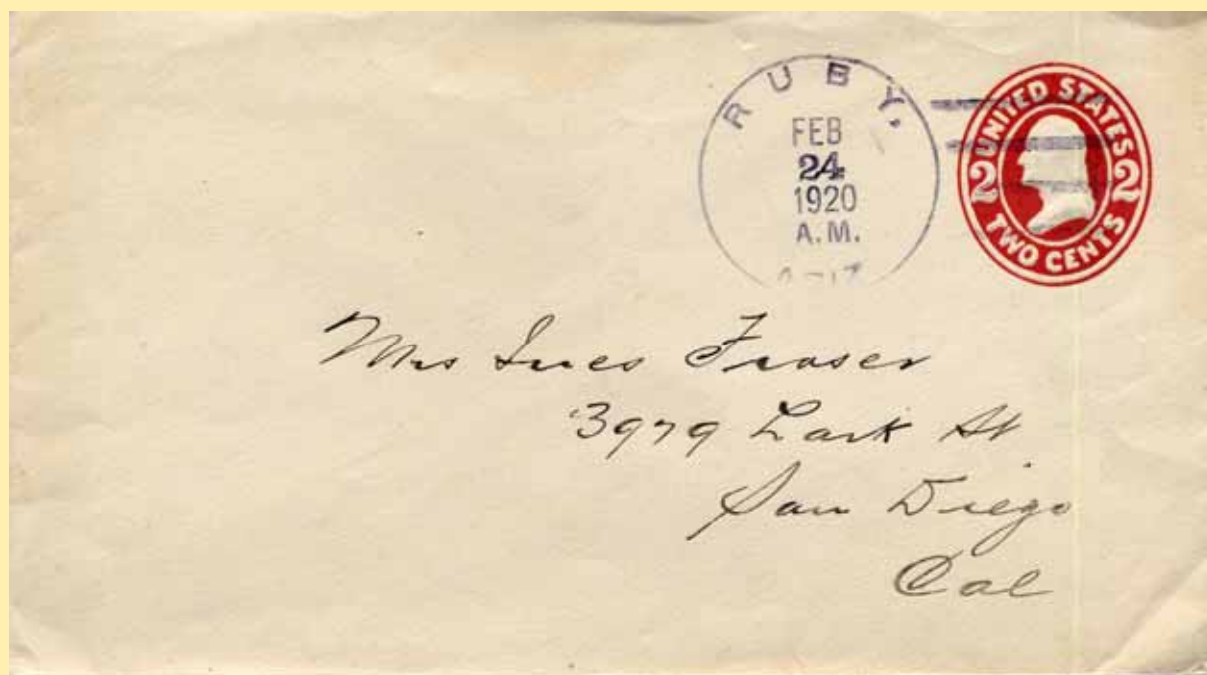 RUBY,
FEB
24
1920
A.M.
UNITED STATES
2 2
TWO CENTS
Mrs Ines Fraser
3979 Lark St
San Diego
Cal